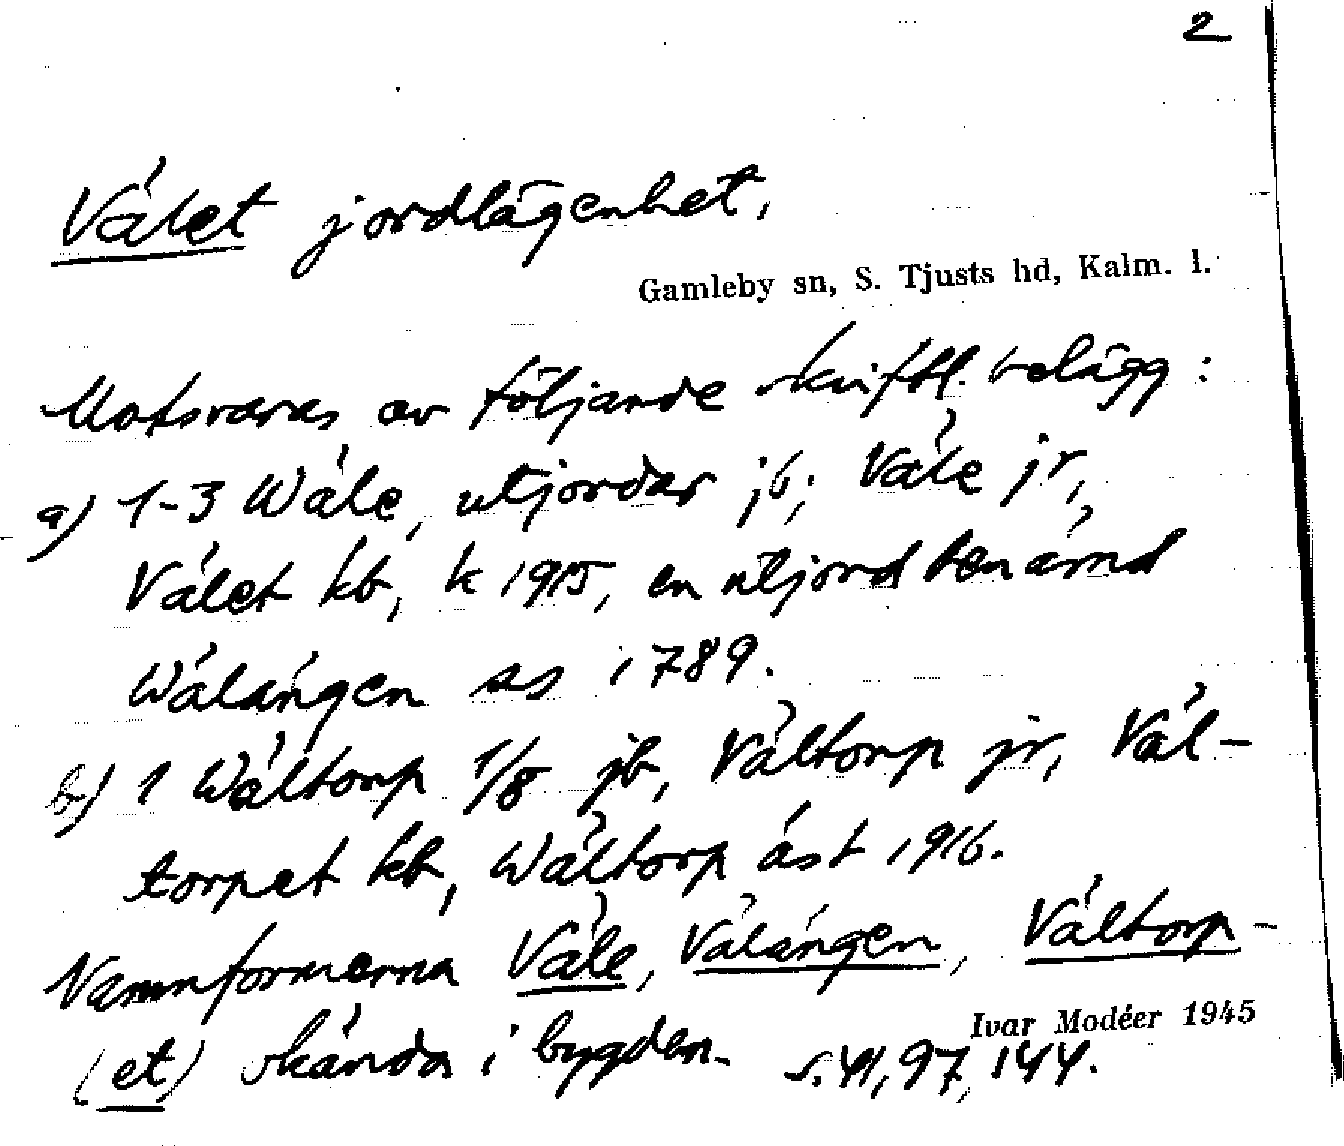 2
Vålet jordlägenhet,
Gamleby sn, S. Tjusts hd, Kalm. l.
Motsvaras av följande skriftl. belägg:
a) 1-3 Wåle, utjordar jb; Våle jr,
Vålet kb, k 1915, en utjord benämnd
Wålängen as 1789.
b) 1 Wåltorp 1/8 jb, Våltorp jr, Vål-
torpet kb, Wåltorp äst 1916.
Namnformerna Våle, Vålängen, Våltorp-
(et) okända i bygden. s. 41, 97, 144.
Ivar Modéer 1945